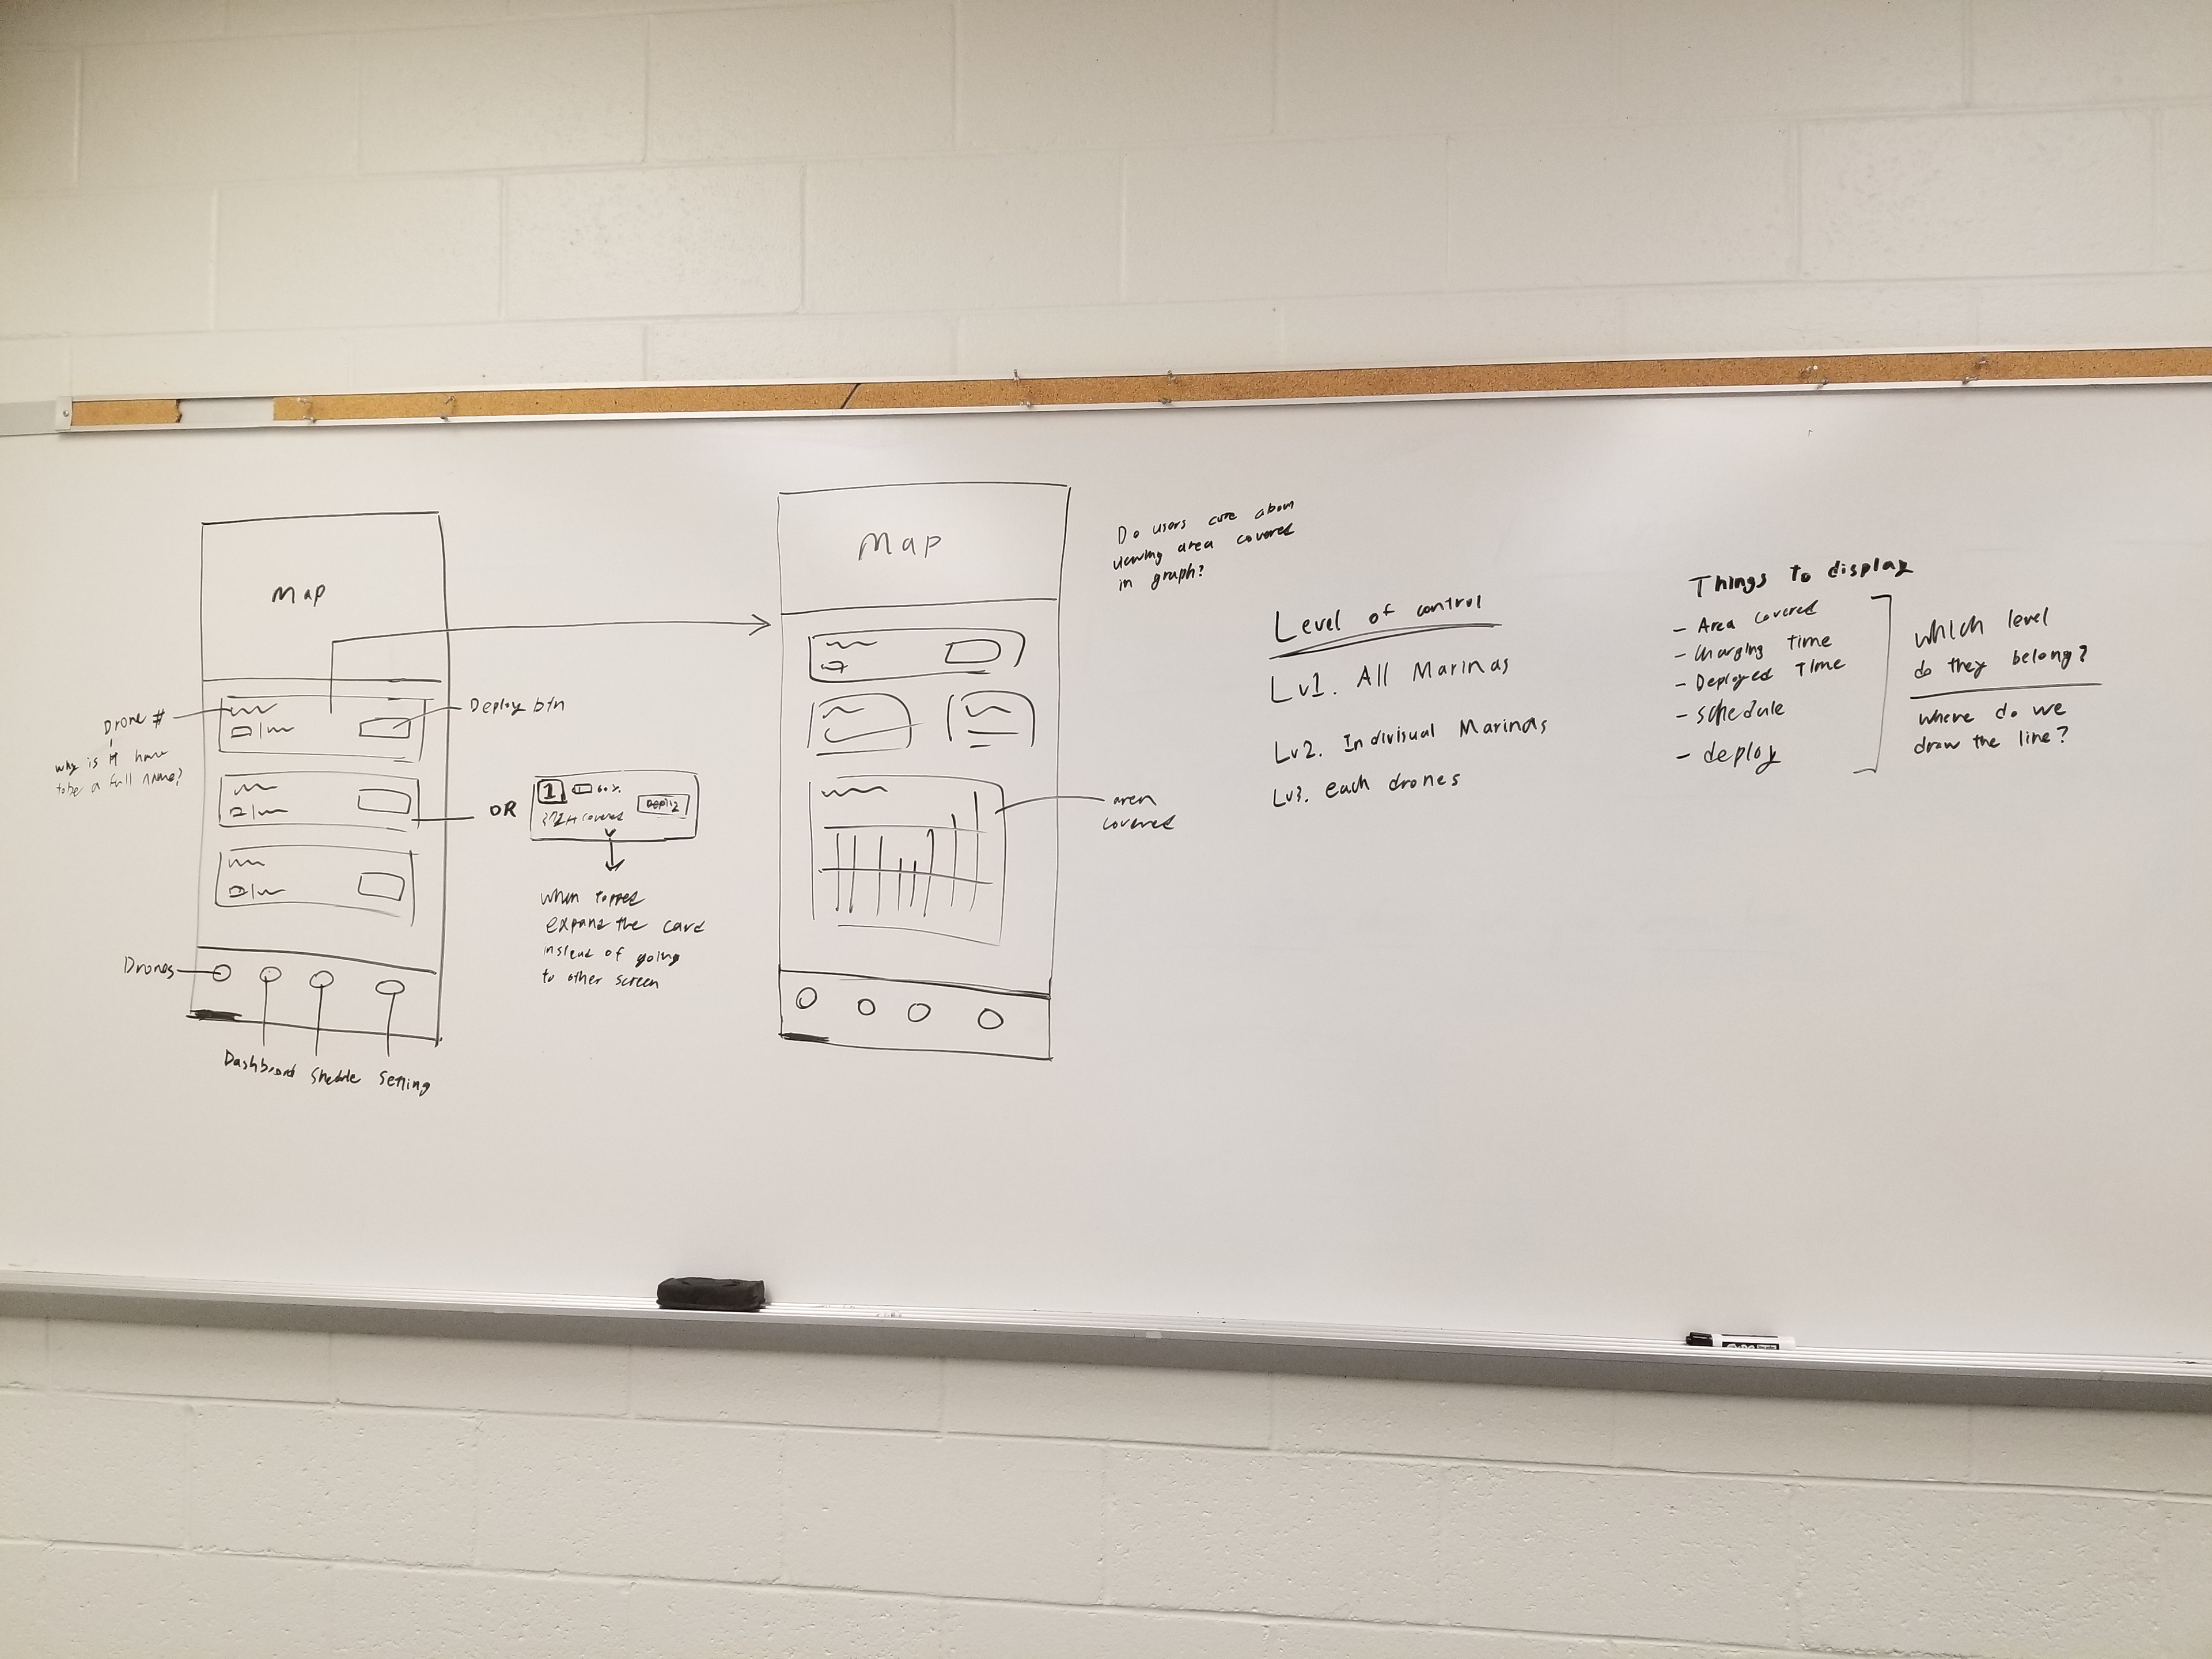 Map
Drone #
why is it have
to be a full name?
Deploy btn
OR
1 60%
covered
Deploy
when tapped
expand the card
instead of going
to other screen
Drones
Dashboard Shedule Setting
Map
Do users care about
viewing area covered
in graph?
area
covered
Level of control
Lv1. All Marinas
Lv2. Indivisual Marinas
Lv3. each drones
Things to display
- Area covered
- Charging Time
- Deployed Time
- schedule
- deploy
which level
do they belong?
where do we
draw the line?